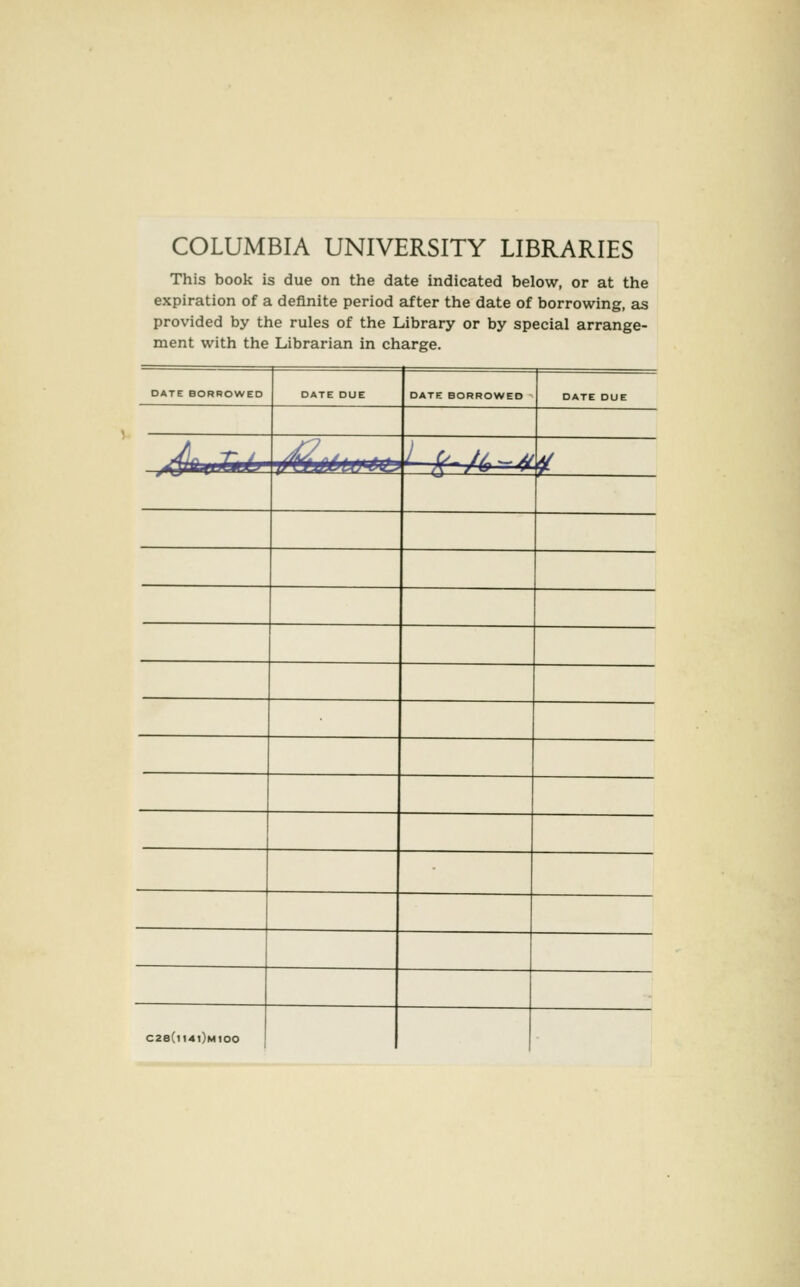 COLUMBIA UNIVERSITY LIBRARIES
This book is due on the date indicated below, or at the
expiration of a definite period after the date of borrowing, as
provided by the rules of the Library or by special arrange-
ment with the Librarian in charge.
DATE BORROWED DATE DUE DATE BORROWED DATE DUE
8-16-44
C28(1141)M100